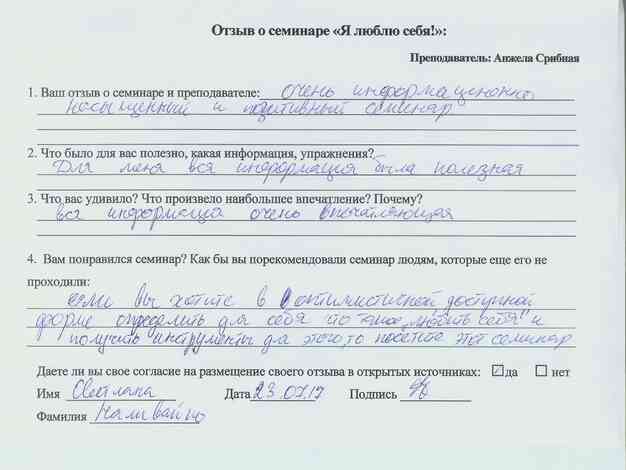 Отзыв о семинаре «Я люблю себя!»:
Преподаватель: Анжела Срибная
1. Ваш отзыв о семинаре и преподавателе: очень информационно
насыщенный и позитивный семинар
2. Что было для вас полезно, какая информация, упражнения?
Для меня вся информация была полезная
3. Что вас удивило? Что произвело наибольшее впечатление? Почему?
вся информация очень впечатляющая
4. Вам понравился семинар? Как бы вы порекомендовали семинар людям, которые еще его не
проходили:
если вы хотите в оптимистичной доступной
форме определить для себя что такое „любить себя" и
получить инструменты для этого, то посетите этот семинар
Даете ли вы свое согласие на размещение своего отзыва в открытых источниках: да нет
Имя Светлана Дата 23.07.17 Подпись
Фамилия Наливайко